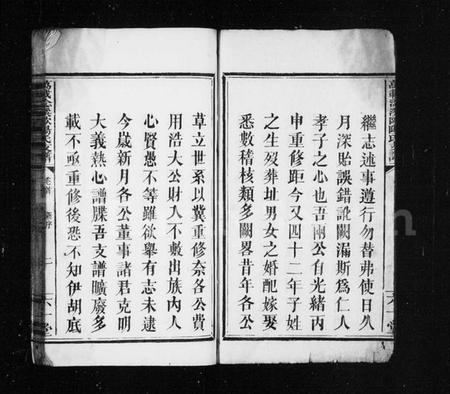 繼志述事遵行勿替弗使日久
月深貽誤錯訛闕漏斯為仁人
孝子之心也吾兩公自光緒丙
申重修距今又四十二年子姓
之生歿葬址男女之婚配嫁娶
悉數稽核類多闕畧昔年各公
草立世系以冀重修奈各公費
用浩大公財人不敷出族內人
心賢愚不等雖欲舉有志未逮
今歲新月各公董事諸君克明
大義熱心譜牒吾支譜曠廢多
載不亟重修後恐不知伊胡底